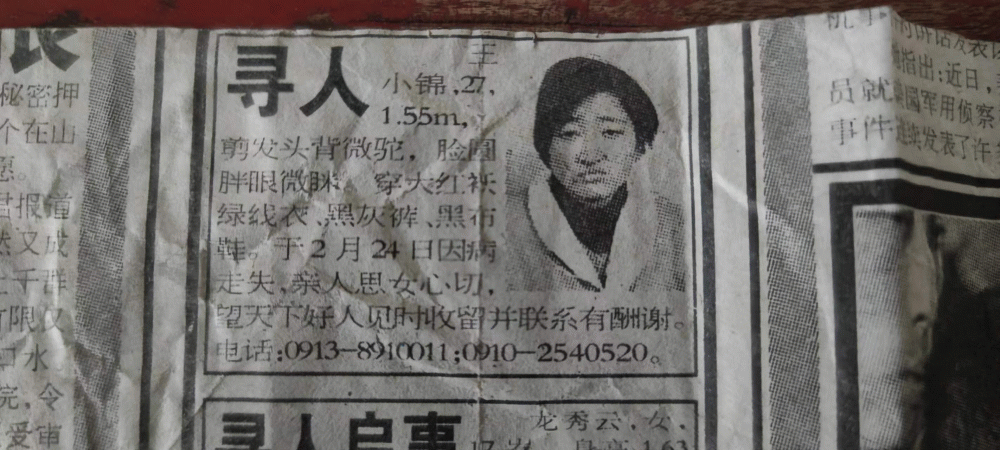 良
秘密押
个在山
愿。
君报道
然又成
上千群
有限仅
口水。
完,令
受审
寻人
王
小锦,27,
1.55m,
剪发头背微驼，脸圆
胖眼微眯。穿大红袄
绿线衣、黑灰裤、黑布
鞋。于2月24日因病
走失,亲人思女心切,
望天下好人见时收留并联系有酬谢。
电话:0913-8910011;0910-2540520。
寻人启事
龙秀云,女,
17岁 身高1.63
讲话发表
指出:近日,
员就美国军用侦察
事件连续发表了许